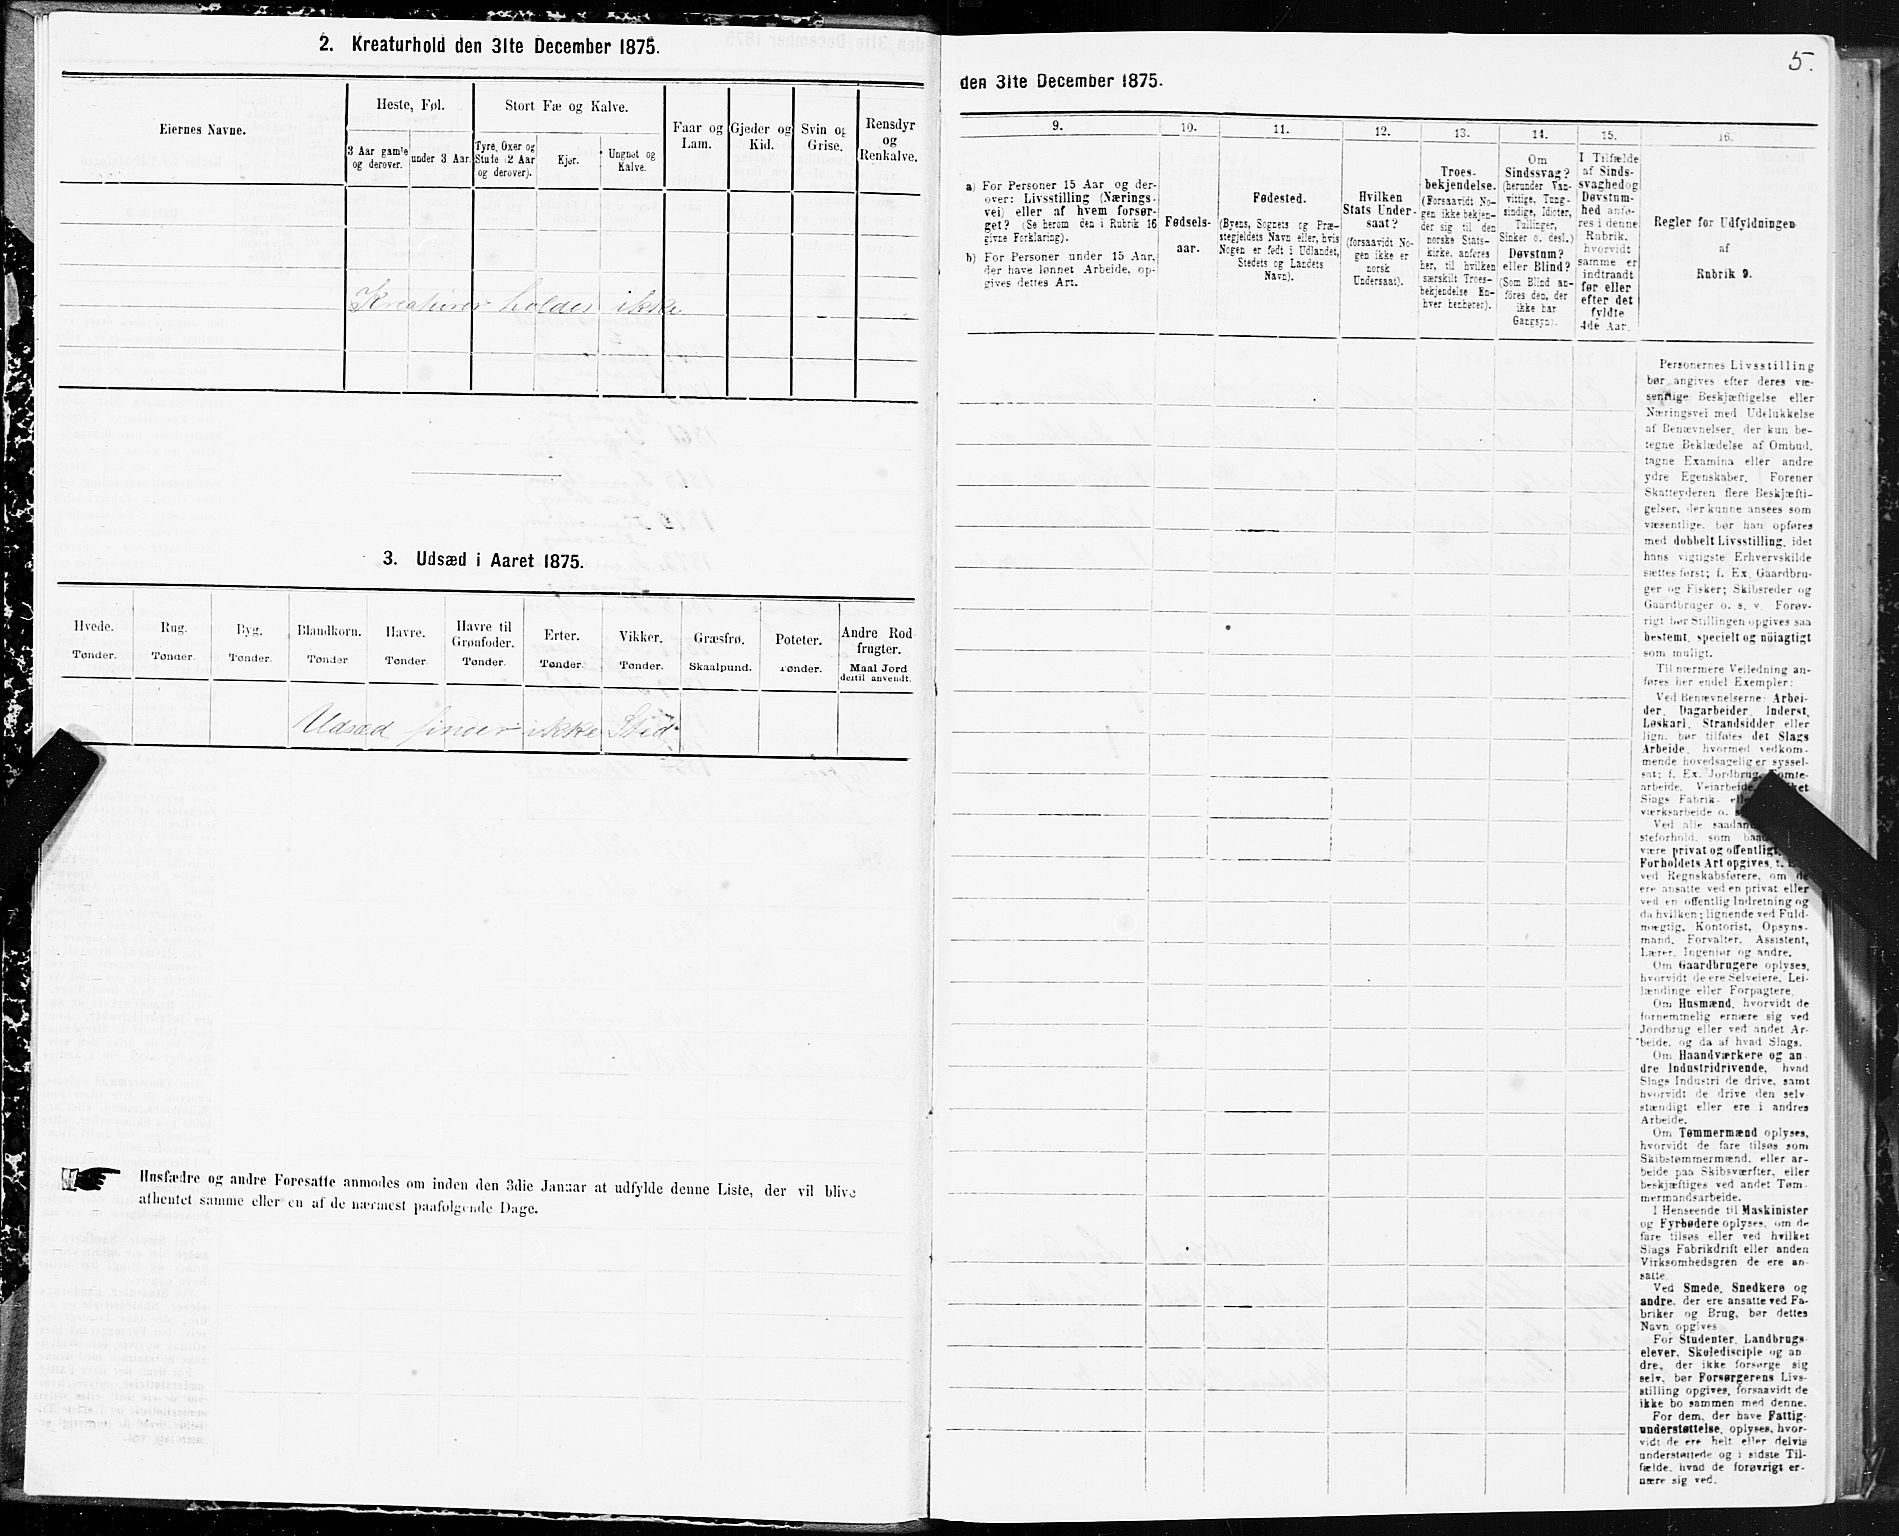 2. Kreaturhold den 31te December 1875.
Eiernes Navne.
Heste, Føl.
3 Aar gamle og derover.
under 3 Aar.
Stort Fæ og Kalve.
Tyre, Oxer og Stude (2 Aar og derover).
Kjør.
Ungnøt og Kalve.
Faar og Lam.
Gjeder og Kid.
Svin og Grise.
Rensdyr og Renkalve.
Kreaturer holdes ikke
3. Udsæd i Aaret 1875.
Hvede. Tønder.
Rug. Tønder.
Byg. Tønder.
Blandkorn. Tønder
Havre. Tønder.
Havre til Grønfoder. Tønder.
Erter. Tønder.
Vikker. Tønder.
Græsfrø. Skaalpund.
Poteter. Tønder.
Andre Rodfrugter. Maal Jord dertil anvendt.
Udsæd finder ikke Sted
Husfædre og andre Foresatte anmodes om inden den 3die Januar at udfylde denne Liste, der vil blive
afhentet samme eller en af de nærmest paafølgende Dage.
5.
den 31te December 1875.
9.
a) For Personer 15 Aar og derover: Livsstilling (Næringsvei) eller af hvem forsørget? (Se herom den i Rubrik 16 givne Forklaring).
b) For Personer under 15 Aar, der have lønnet Arbeide, opgives dettes Art.
10.
Fødselsaar.
11.
Fødested.
(Byens, Sognets og Præstegjeldets Navn eller, hvis Nogen er født i Udlandet, Stedets og Landets Navn).
12.
Hvilken Stats Undersaat?
(forsaavidt Nogen ikke er norsk Undersaat).
13.
Troesbekjendelse.
(Forsaavidt Nogen ikke bekjender sig til den norske Statskirke, anføres her, til hvilken særskilt Troesbekjendelse Enhver henhører).
14.
Om Sindssvag? (herunder Vanvittige, Tungsindige, Idioter, Tullinger, Sinker o. desl.)
Døvstum? eller Blind?
(Som Blind anføres den, der ikke har Gangsyn).
15.
I Tilfælde af Sindssvaghed og Døvstumhed anføres i denne Rubrik, hvorvidt samme er indtraadt før eller efter det fyldte 4de Aar.
16.
Regler for Udfyldningen
af
Rubrik 9.
Personernes Livsstilling
bør angives efter deres væ-
sentlige Beskjæftigelse eller
Næringsvei med Udelukkelse
af Benævnelser, der kun be-
tegne Beklædelse af Ombud,
tagne Examina eller andre
ydre Egenskaber. Forener
Skatteyderen flere Beskjæfti-
gelser, der kunne ansees som
væsentlige, bør han opføres
med dobbelt Livsstilling, idet
hans vigtigste Erhvervskilde
sættes først; f. Ex. Gaardbru-
ger og Fisker; Skibsreder og
Gaardbruger o. s. v. Forøv-
rigt bør Stillingen opgives saa
bestemt, specielt og nøiagtigt
som muligt.
Til nærmere Veiledning an-
føres her endel Exempler:
Ved Benævnelserne: Arbei-
der, Dagarbeider, Inderst,
Løskarl, Strandsidder eller
lign. bør tilføies det Slags
Arbeide, hvormed vedkom-
mende hovedsagelig er syssel-
sat; f. Ex. Jordbrug, Tomte-
arbeide, Veiarbeide,
Slags Fabrik-
værksarbeide o.
Ved alle
steforhold, som
være privat og offentligt,
Forholdets Art opgives,
ved Regnskabsførere, om de
ere ansatte ved en privat eller
ved en offentlig Indretning og
da hvilken; lignende ved Fuld-
mægtig, Kontorist, Opsyns-
mand, Forvalter, Assistent,
Lærer, Ingeniør og andre.
Om Gaardbrugere oplyses,
hvorvidt de ere Selveiere, Lei-
lændinge eller Forpagtere.
Om Husmænd, hvorvidt de
fornemmelig ernære sig ved
Jordbrug eller ved andet Ar-
beide, og da af hvad Slags.
Om Haandværkere og an-
dre Industridrivende, hvad
Slags Industri de drive, samt
hvorvidt de drive den selv-
stændigt eller ere i andres
Arbeide.
Om Tømmermænd oplyses,
hvorvidt de fare tilsøs som
Skibstømmermænd, eller ar-
beide paa Skibsværfter, eller
beskjæftiges ved andet Tøm-
mermandsarbeide.
I Henseende til Maskinister
og Fyrbødere oplyses, om de
fare tilsøs eller ved hvilket
Slags Fabrikdrift eller anden
Virksomhedsgren de ere an-
satte.
Ved Smede, Snedkere og
andre, der ere ansatte ved Fa-
briker og Brug, bør dettes
Navn opgives
For Studenter, Landbrugs-
elever, Skoledisciple og an
dre, der ikke forsørge sig
selv, bør Forsørgerens Livs-
stilling opgives, forsaavidt de
ikke bo sammen med denne.
For dem, der have Fattig-
understøttelse, oplyses, hvor-
vidt de ere helt eller delvis
understøttede og i sidste Til-
fælde, hvad de forøvrigt er-
nære sig ved.